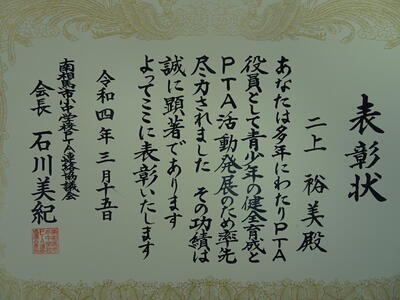 表彰状
二上 裕美殿
あなたは多年にわたりPTA
役員として青少年の健全育成と
PTA活動発展のため率先
尽力されました その功績は
誠に顕著であります
よってここに表彰いたします
令和四年三月十五日
南相馬市小中学校PTA連絡協議会
会長 石川美紀